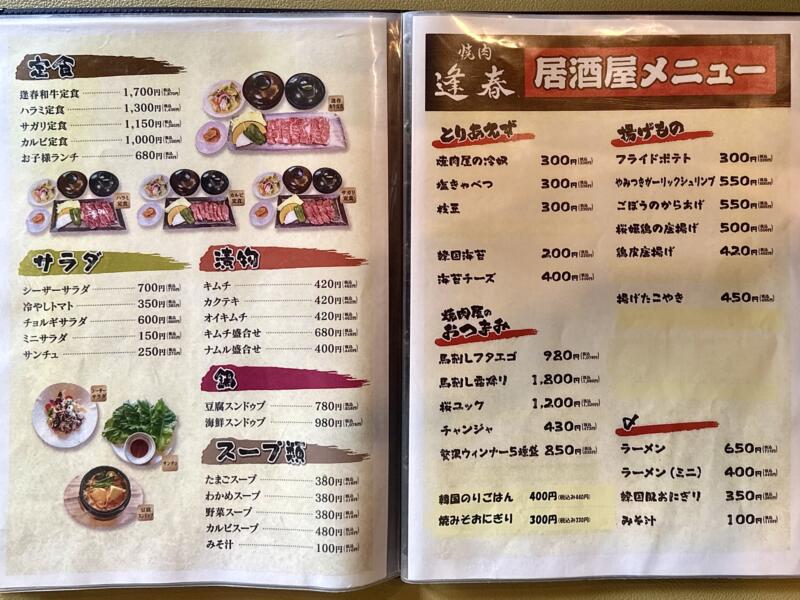 定食
逢春和牛定食 1,700円
ハラミ定食 1,300円
サガリ定食 1,150円
カルビ定食 1,000円
お子様ランチ 680円
逢春
ハラミ定食
カルビ定食
サガリ定食
サラダ
シーザーサラダ 700円
冷やしトマト 350円
チョレギサラダ 600円
ミニサラダ 150円
サンチュ 250円
シーザーサラダ
サンチュ
豆腐スンドゥブ
漬物
キムチ 420円
カクテキ 420円
オイキムチ 420円
キムチ盛合せ 680円
ナムル盛合せ 400円
鍋
豆腐スンドゥブ 780円
海鮮スンドゥブ 980円
スープ類
たまごスープ 380円
わかめスープ 380円
野菜スープ 380円
カルビスープ 480円
みそ汁 100円
焼肉
逢春
居酒屋メニュー
とりあえず
焼肉屋の冷奴 300円
塩きゃべつ 300円
枝豆 300円
韓国海苔 200円
海苔チーズ 400円
焼肉屋の
おつまみ
馬刺しフタエゴ 980円
馬刺し霜降り 1,800円
桜ユッケ 1,200円
チャンジャ 430円
贅沢ウィンナー5種盛 850円
韓国のりごはん 400円(税込み440円)
焼みそおにぎり 300円(税込み330円)
揚げもの
フライドポテト 300円
やみつきガーリックシュリンプ 550円
ごぼうのから揚げ 550円
桜姫鶏の唐揚げ 500円
鶏皮唐揚げ 420円
揚げたこやき 450円
〆
ラーメン 650円
ラーメン(ミニ) 400円
韓国風おにぎり 350円
みそ汁 100円